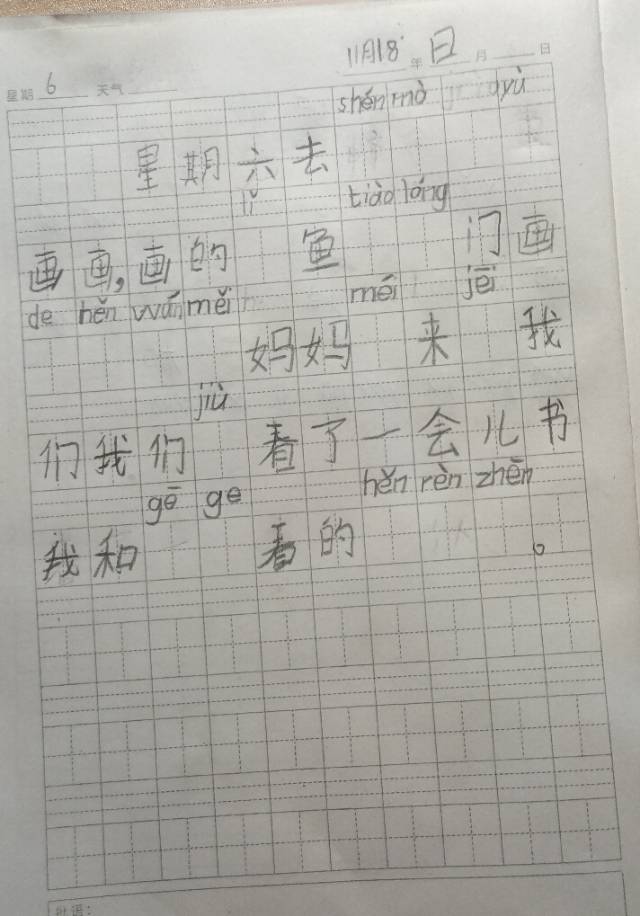 11月18日
星期 6 天气 年 月 日
shén mò yù
星期六去
lǐ tiào lóng
画画,画的 鱼 门画
de hěn wán měi méi jēi
妈妈 来 我
jiù
们我们 看了一会儿书
gē ge hěn rèn zhēn
我和 看的 。
批语: